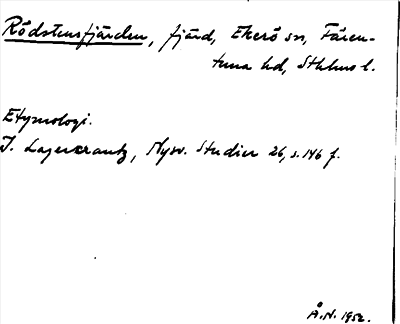 Rödstensfjärden, fjärd, Ekerö sn, Fären-
tuna hd, Sthlms l.
Etymologi.
I. Lagercrantz, Nysv. Studier 26, s. 146 f.
Å.N. 1952.